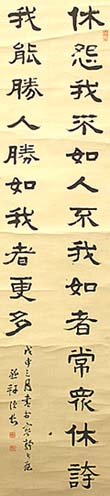 休怨我不如人不我如者常衆休誇
我能勝人勝如我者更多
戊申三月書